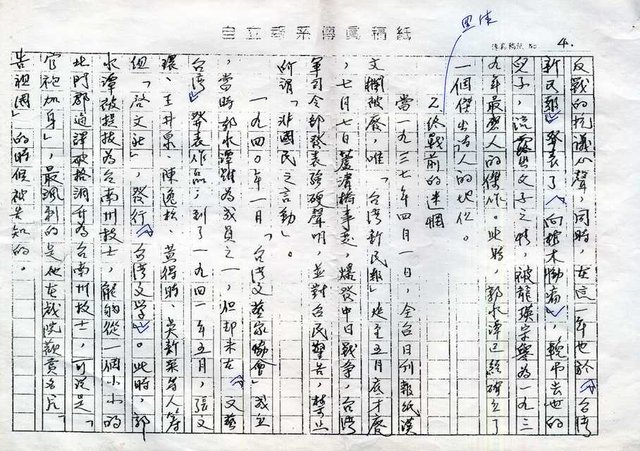 自立報系傳真稿紙
4.
反戰的抗議心聲,同時,在這一年也於《台灣
新民報》發表了〈向棺木慟哭〉,輓弔去世的
兒子,流露父子之情,被龍瑛宗譽為一九三
九年最感人的傑作。此時,郭水潭已經確立了
一個傑出詩人的地位。
乙、終戰前的迷惘
當一九三七年四月一日,全台日刊報紙漢
文欄被廢,唯「台灣新民報」延至五月底才廢
,七月七日蘆溝橋事起,爆發中日戰爭,台灣
軍司令部發表強硬聲明,並對台民警告,禁止
所謂「非國民之言動」。
一九四〇年一月,「台灣文藝家協會」成立
,當時郭水潭雖為成員之一,但却未在《文藝
台灣》發表作品;到了一九四一年五月,張文
環、王井泉、陳逸松、黃得時、吳新榮等人籌
組「啓文社」,發行《台灣文學》。此時,郭
水潭被提拔為台南州技士,能夠從一個小小的
北門郡通譯破格調升為台南州技士,可說是「
官袍加身」,最諷刺的是他在戲院觀賞名片「
告祖國」的時候被告知的。